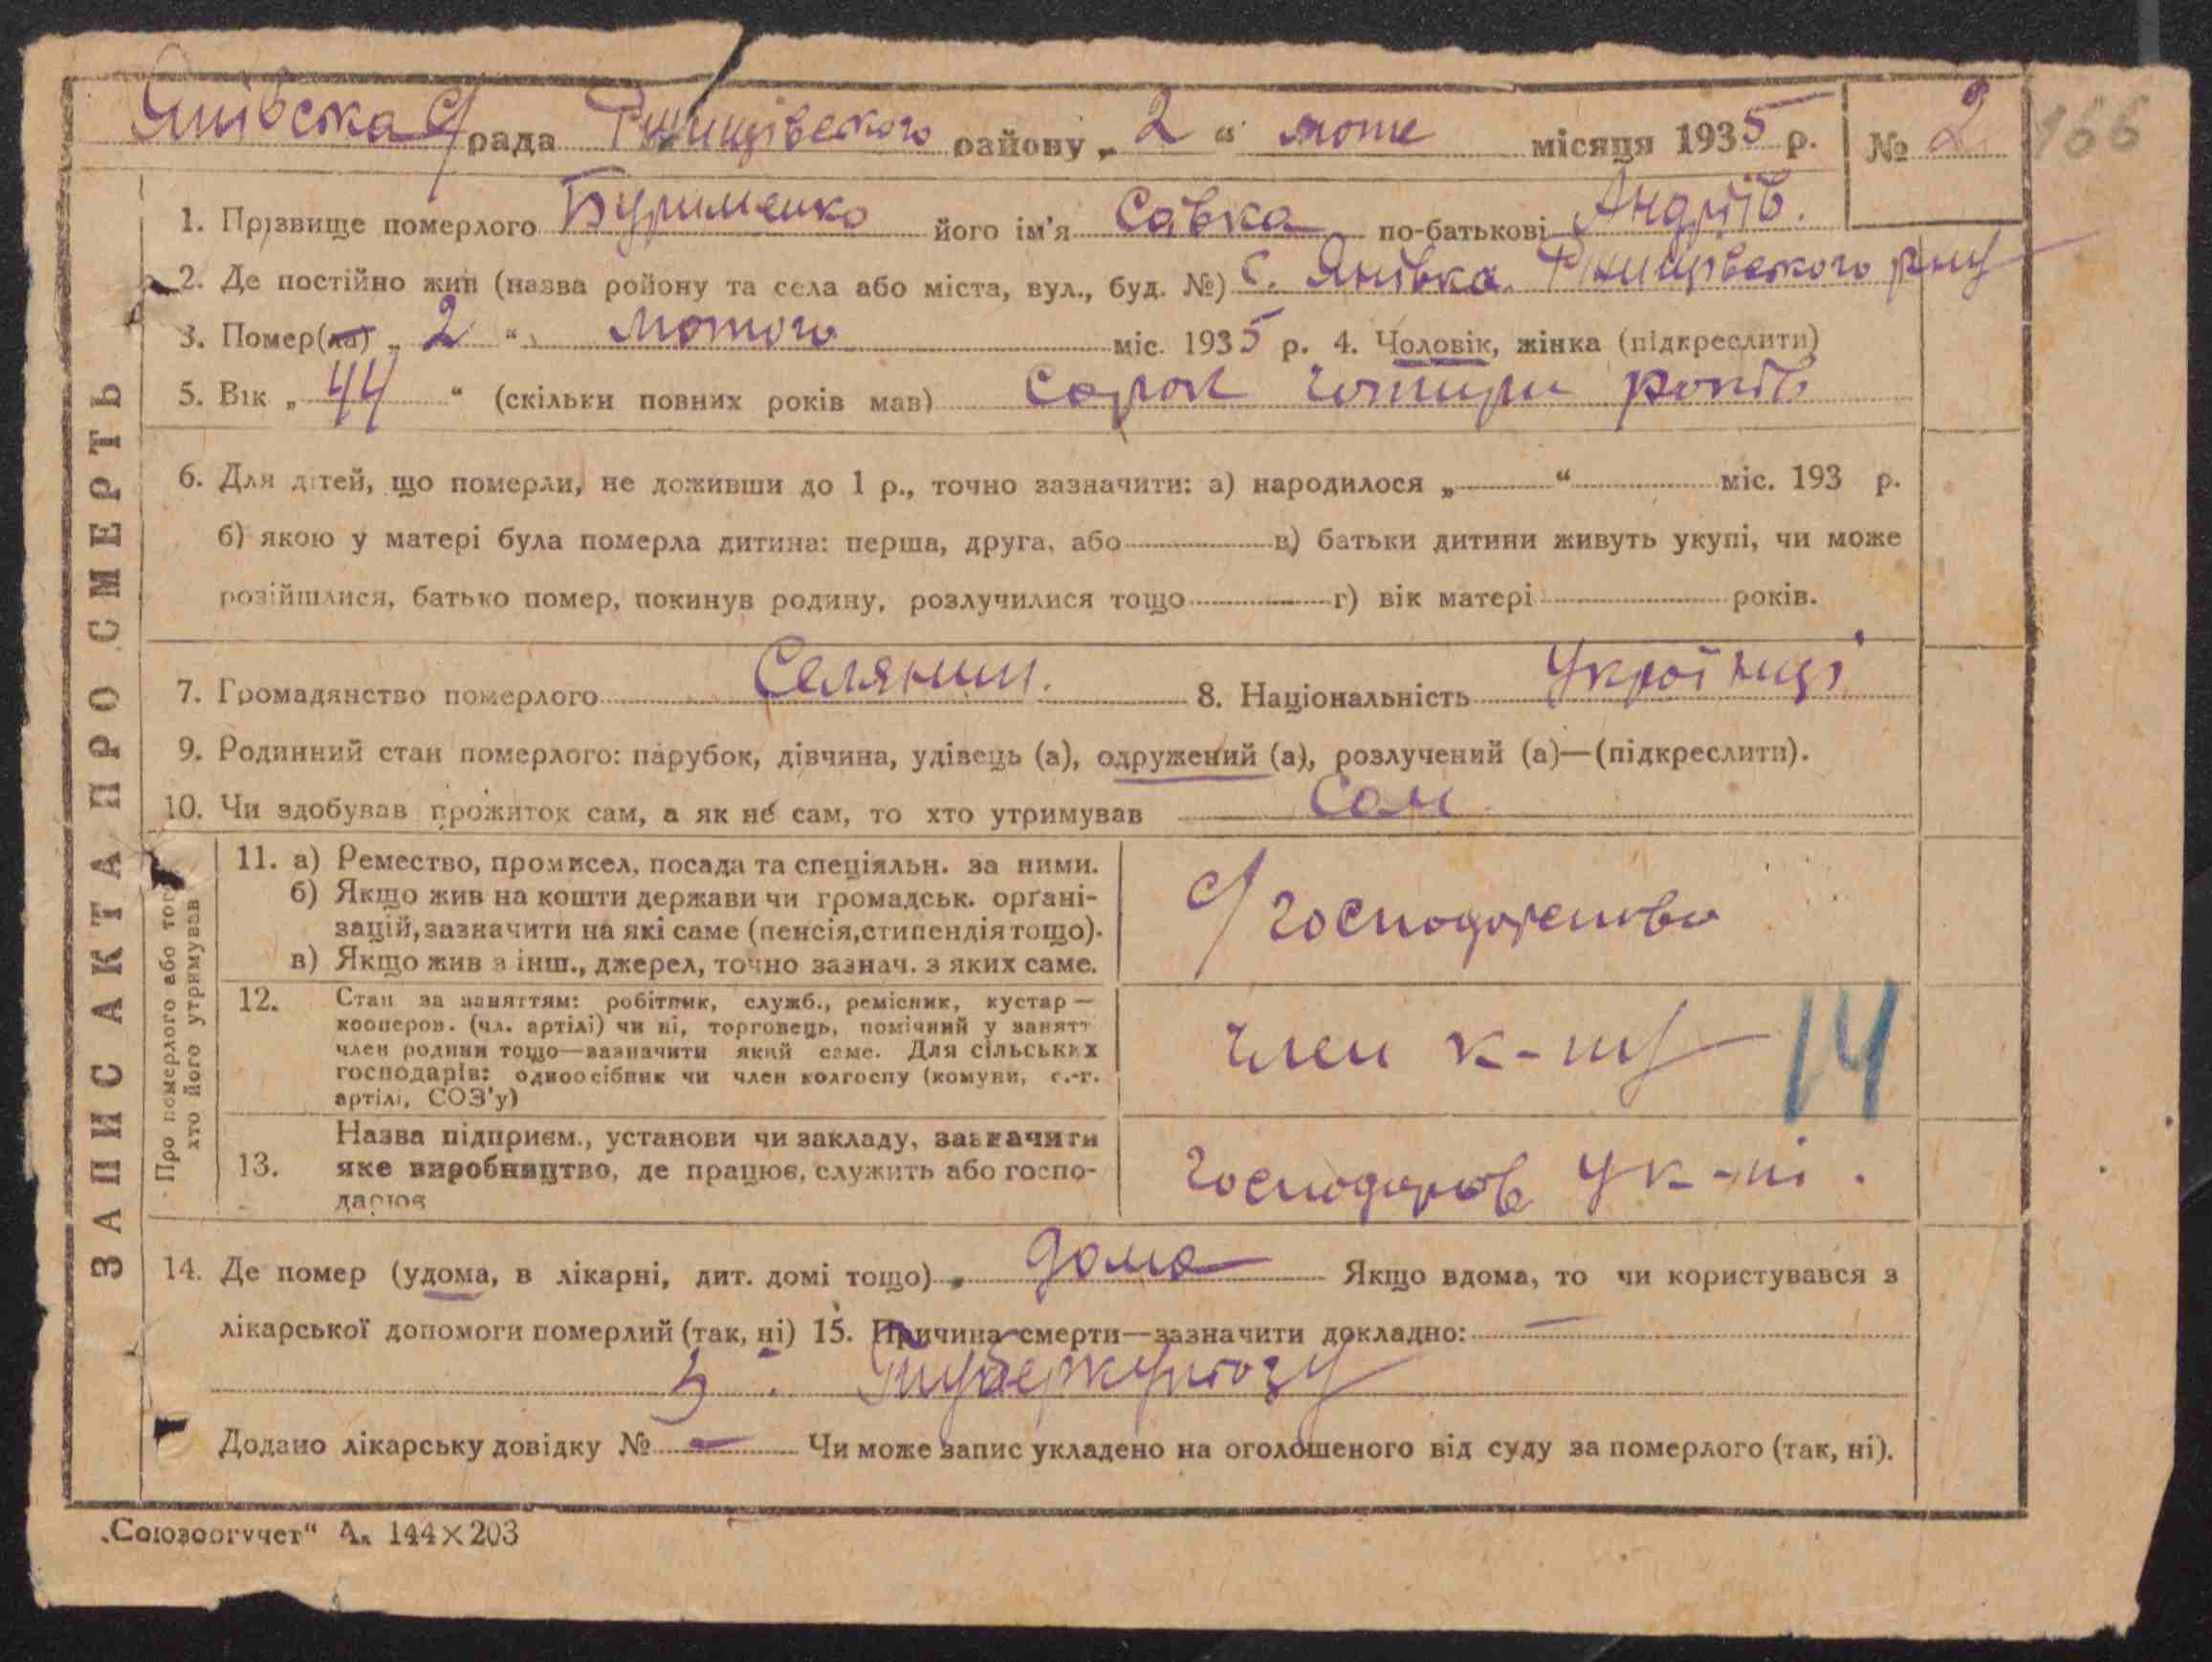 Янівска с/рада Ржищівського району „ 2 “ люте місяця 1935 р. № 2 166
1. Прізвище померлого Бурименко його ім’я Савка по-батькові Андріїв.
2. Де постійно жив (назва ройону та села або міста, вул., буд. №) с. Янівка Ржищівського р-ну
3. Помер(ла) „ 2 “ лютого міс. 1935 р. 4. Чоловік, жінка (підкреслити)
5. Вік „ 44 “ (скільки повних років мав) сорок чотири років
6. Для дітей, що померли, не доживши до 1 р., точно зазначити: а) народилося „ “ міс. 193 р.
б) якою у матері була померла дитина: перша, друга, або в) батьки дитини живуть укупі, чи може
розійшлися, батько помер, покинув родину, розлучилися тощо г) вік матері років.
7. Громадянство померлого Селянин. 8. Національність Українці
9. Родинний стан померлого: парубок, дівчина, удівець (а), одружений (а), розлучений (а)—(підкреслити).
10. Чи здобував прожиток сам, а як не сам, то хто утримував Сам
ЗАПИС АКТА ПРО СМЕРТЬ
Про померлого або того
хто його утримував
11. а) Ремество, промисел, посада та спеціяльн. за ними.
б) Якщо жив на кошти держави чи громадськ. орґані-
зацій, зазначити на які саме (пенсія, стипендія тощо).
в) Якщо жив з інш., джерел, точно зазнач. з яких саме.
с/господарство
12. Стан за заняттям: робітник, служб., ремісник, кустар —
кооперов. (чл. артілі) чи ні, торговець, помічний у занятт
член родини тощо—зазначити який саме. Для сільських
господарів: одноосібник чи член колгоспу (комуни, с.-г.
артілі, СОЗ'у)
член к-пу 14
13. Назва підприєм., установи чи закладу, зазначити
яке виробництво, де працює, служить або госпо-
дарює
господарюв у к-пі.
14. Де помер (удома, в лікарні, дит. домі тощо) дома Якщо вдома, то чи користувався з
лікарської допомоги померлий (так, ні) 15. Причина смерти—зазначити докладно: —
з: Туберкульозу
Додано лікарську довідку № - Чи може запис укладено на оголошеного від суду за померлого (так, ні).
„Союзоргучет“ А, 144×203